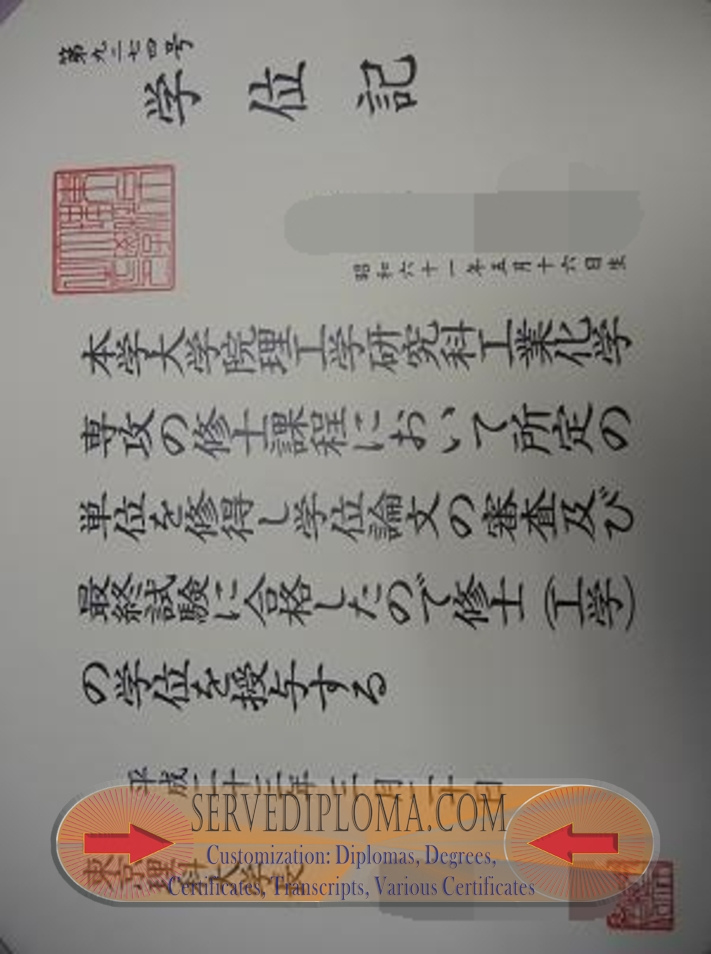 第九二七四号
学位記
昭和六十一年五月十六日生
本学大学院理工学研究科工業化学
専攻の修士課程において所定の
単位を修得し学位論文の審査及び
最終試験に合格したので修士（工学）
の学位を授与する
平成二十三年三月
東京理科大学長
SERVEDIPLOMA.COM
Customization: Diplomas, Degrees,
Certificates, Transcripts, Various Certificates